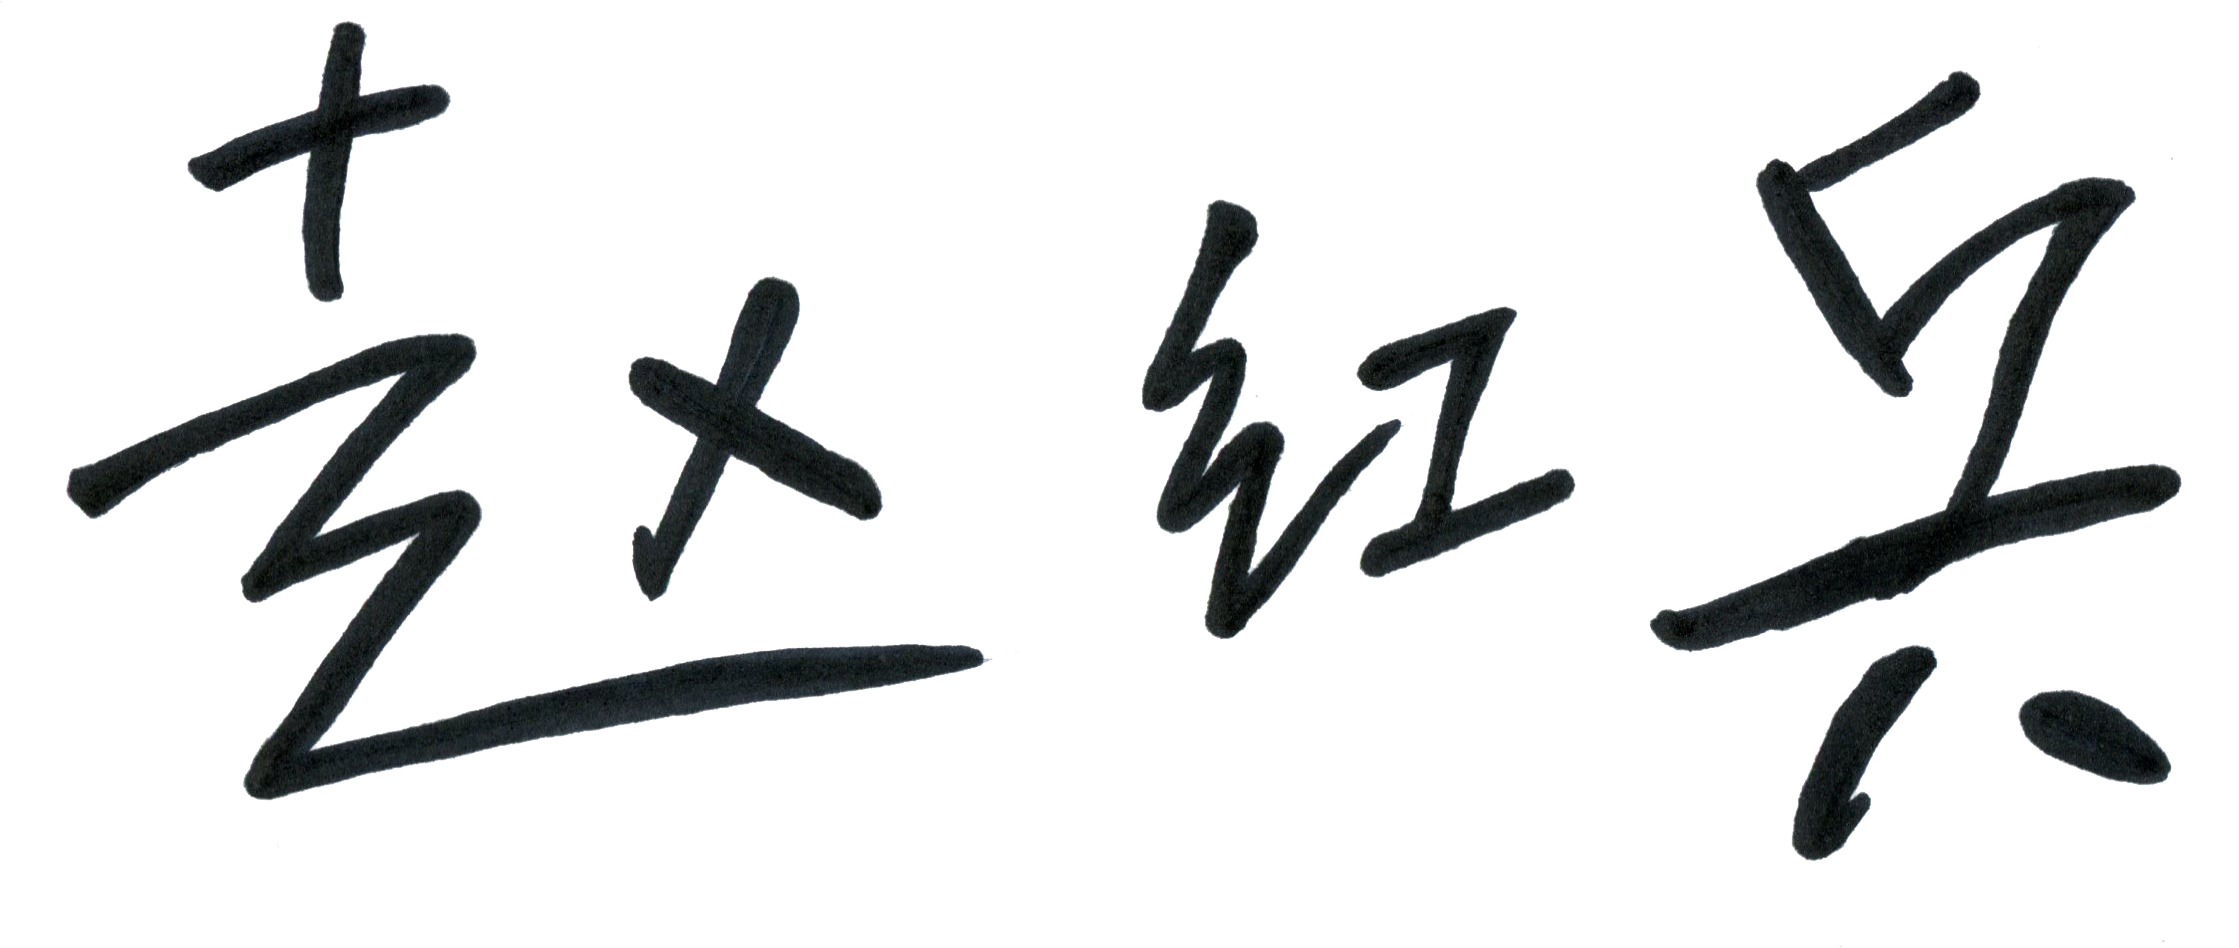 赵红兵